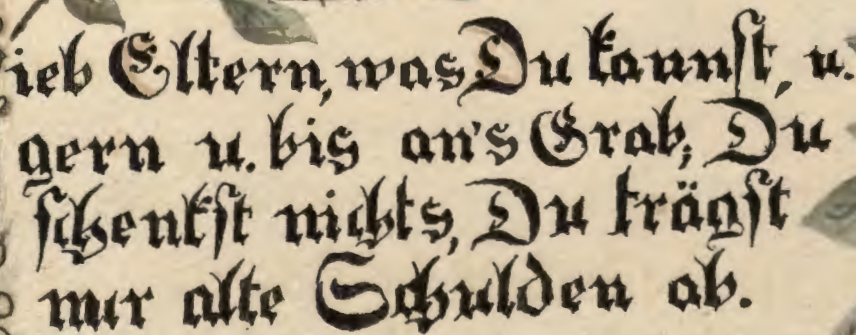 ieb Eltern, was Du kannst, u.
gern u. bis an's Grab; Du
schenkst nichts, Du trägst
nur alte Schulden ab.